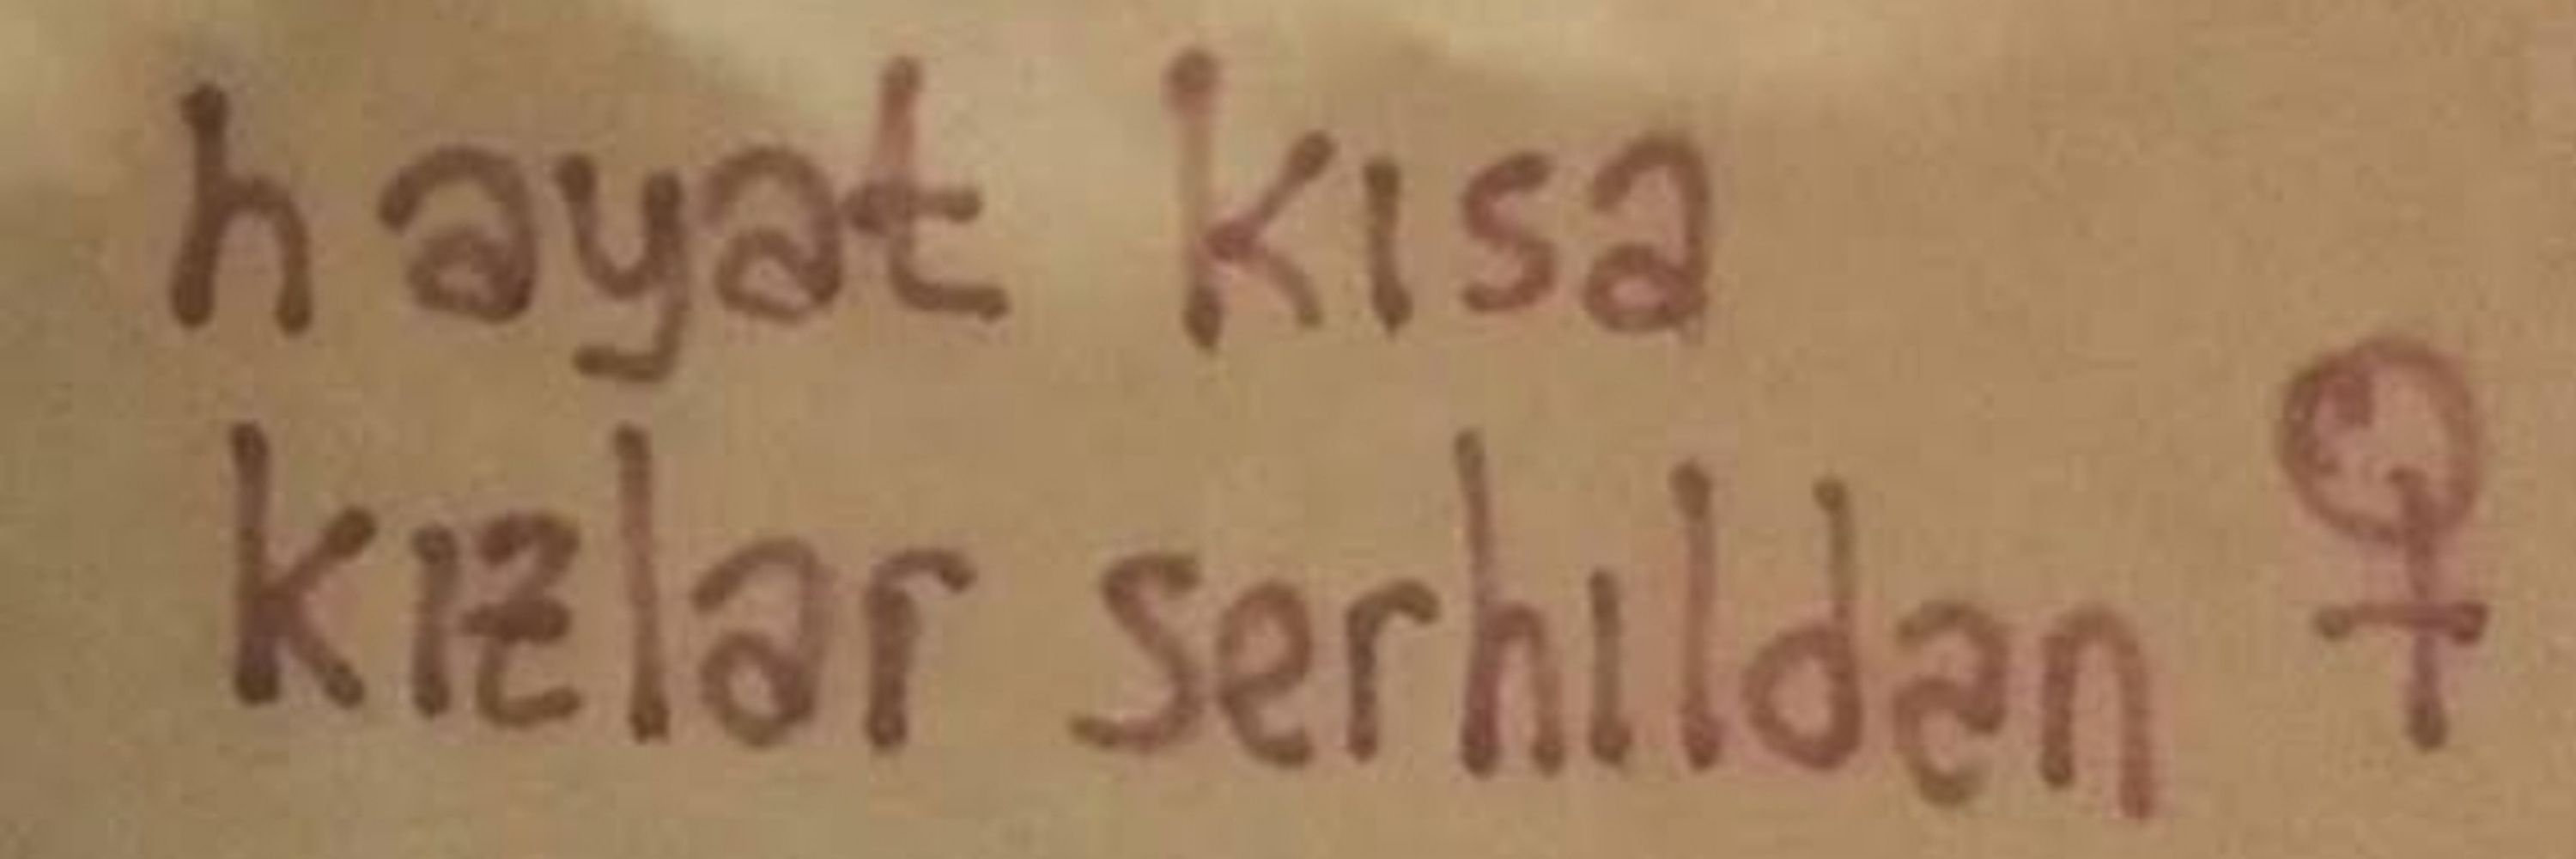 hayat kısa
kızlar serhıldan ♀